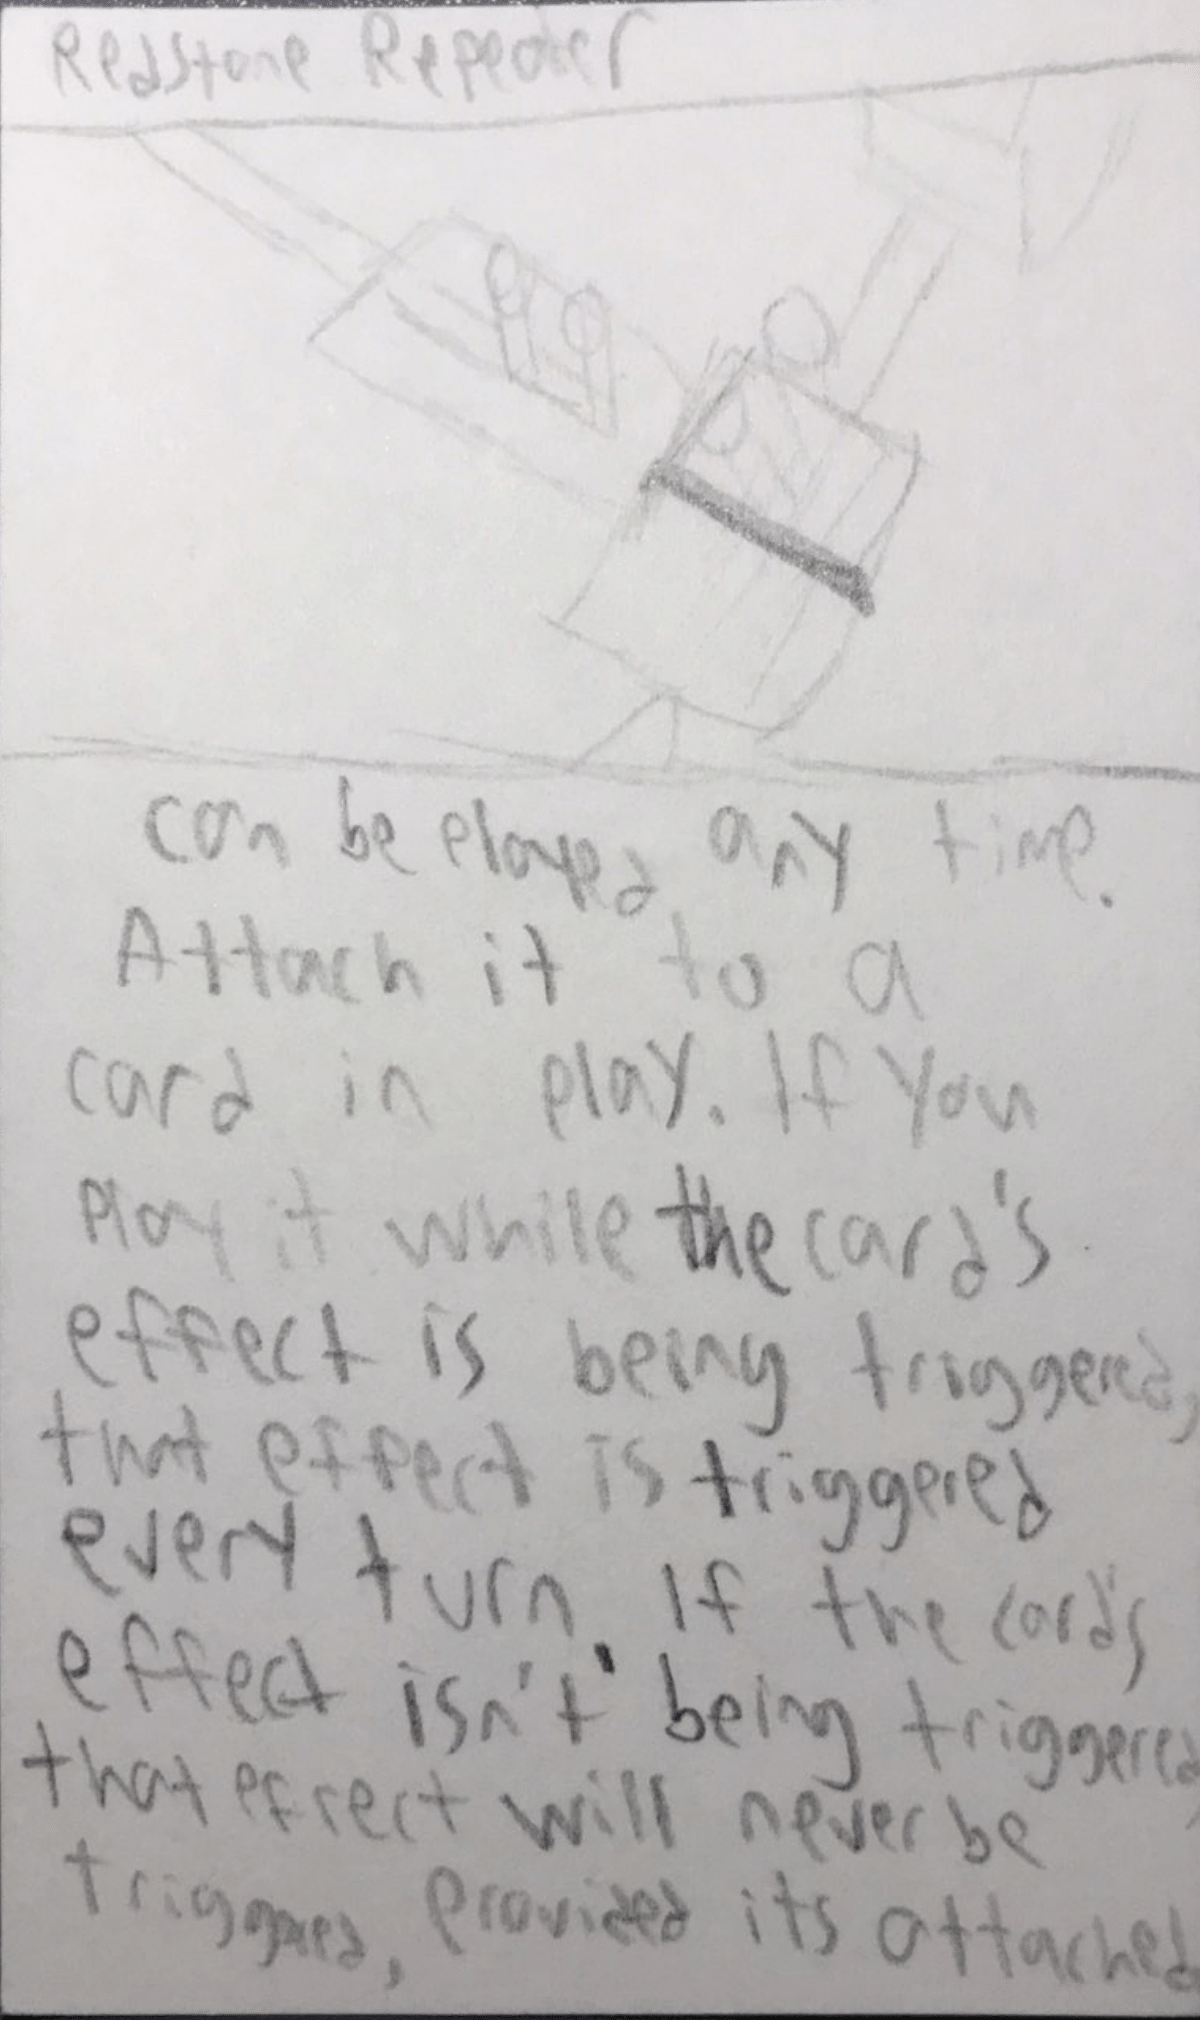 Redstone Repeater
can be played any time.
Attach it to a
card in play. If you
play it while the card's
effect is being triggered,
that effect is triggered
every turn. If the card's
effect isn't being triggered,
that effect will never be
triggered, provided its attached